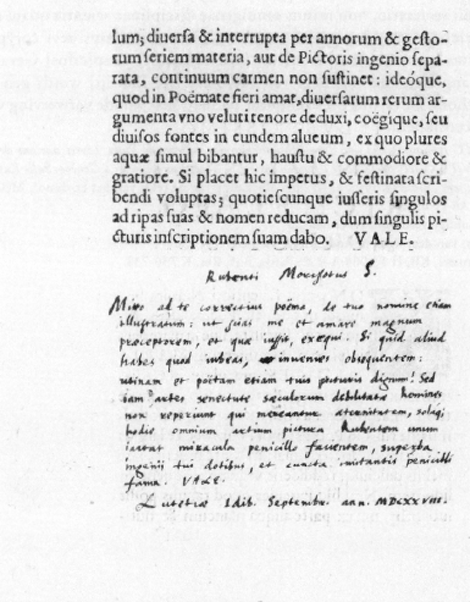 lum; diuersa & interrupta per annorum & gesto-
rum seriem materia, aut de Pictoris ingenio sepa-
rata, continuum carmen non sustinet: ideóque,
quod in Poësi fieri amat, diuersarum rerum ar-
gumenta vno veluti tenore deduxi, coëgique, seu
diuisos fontes in eundem alueum, ex quo plures
aquæ simul bibantur, haustu & commodiore &
gratiore. Si placet hic impetus, & festinata scri-
bendi voluptas; quotiescunque iusseris singulos
ad ripas suas & nomen reducam, dum singulis pi-
cturis inscriptionem suam dabo. VALE.
Rubenio Morisotus S.
Mitto ad te correctius poëma, de tuo nomine etiam
illustratum: ut scias me et amare magnum
præceptorem, et quæ iussit, exequi. Si quid aliud
habes quod iubeas, invenies obsequentem:
utinam et poëtam etiam tuis picturis dignum! Sed
iam artes senectute sæculorum debilitatæ homines
non reperiunt qui mereantur æternitatem, solaq;
hodie omnium artium pictura Rubenium unum
iactat miracula penicillo faventem, superba
ingenii tui dotibus, et cuncta imitantis penicilli
fama. VALE.
Lutetiæ Idib. Septemb. ann. MDCXXVIII.